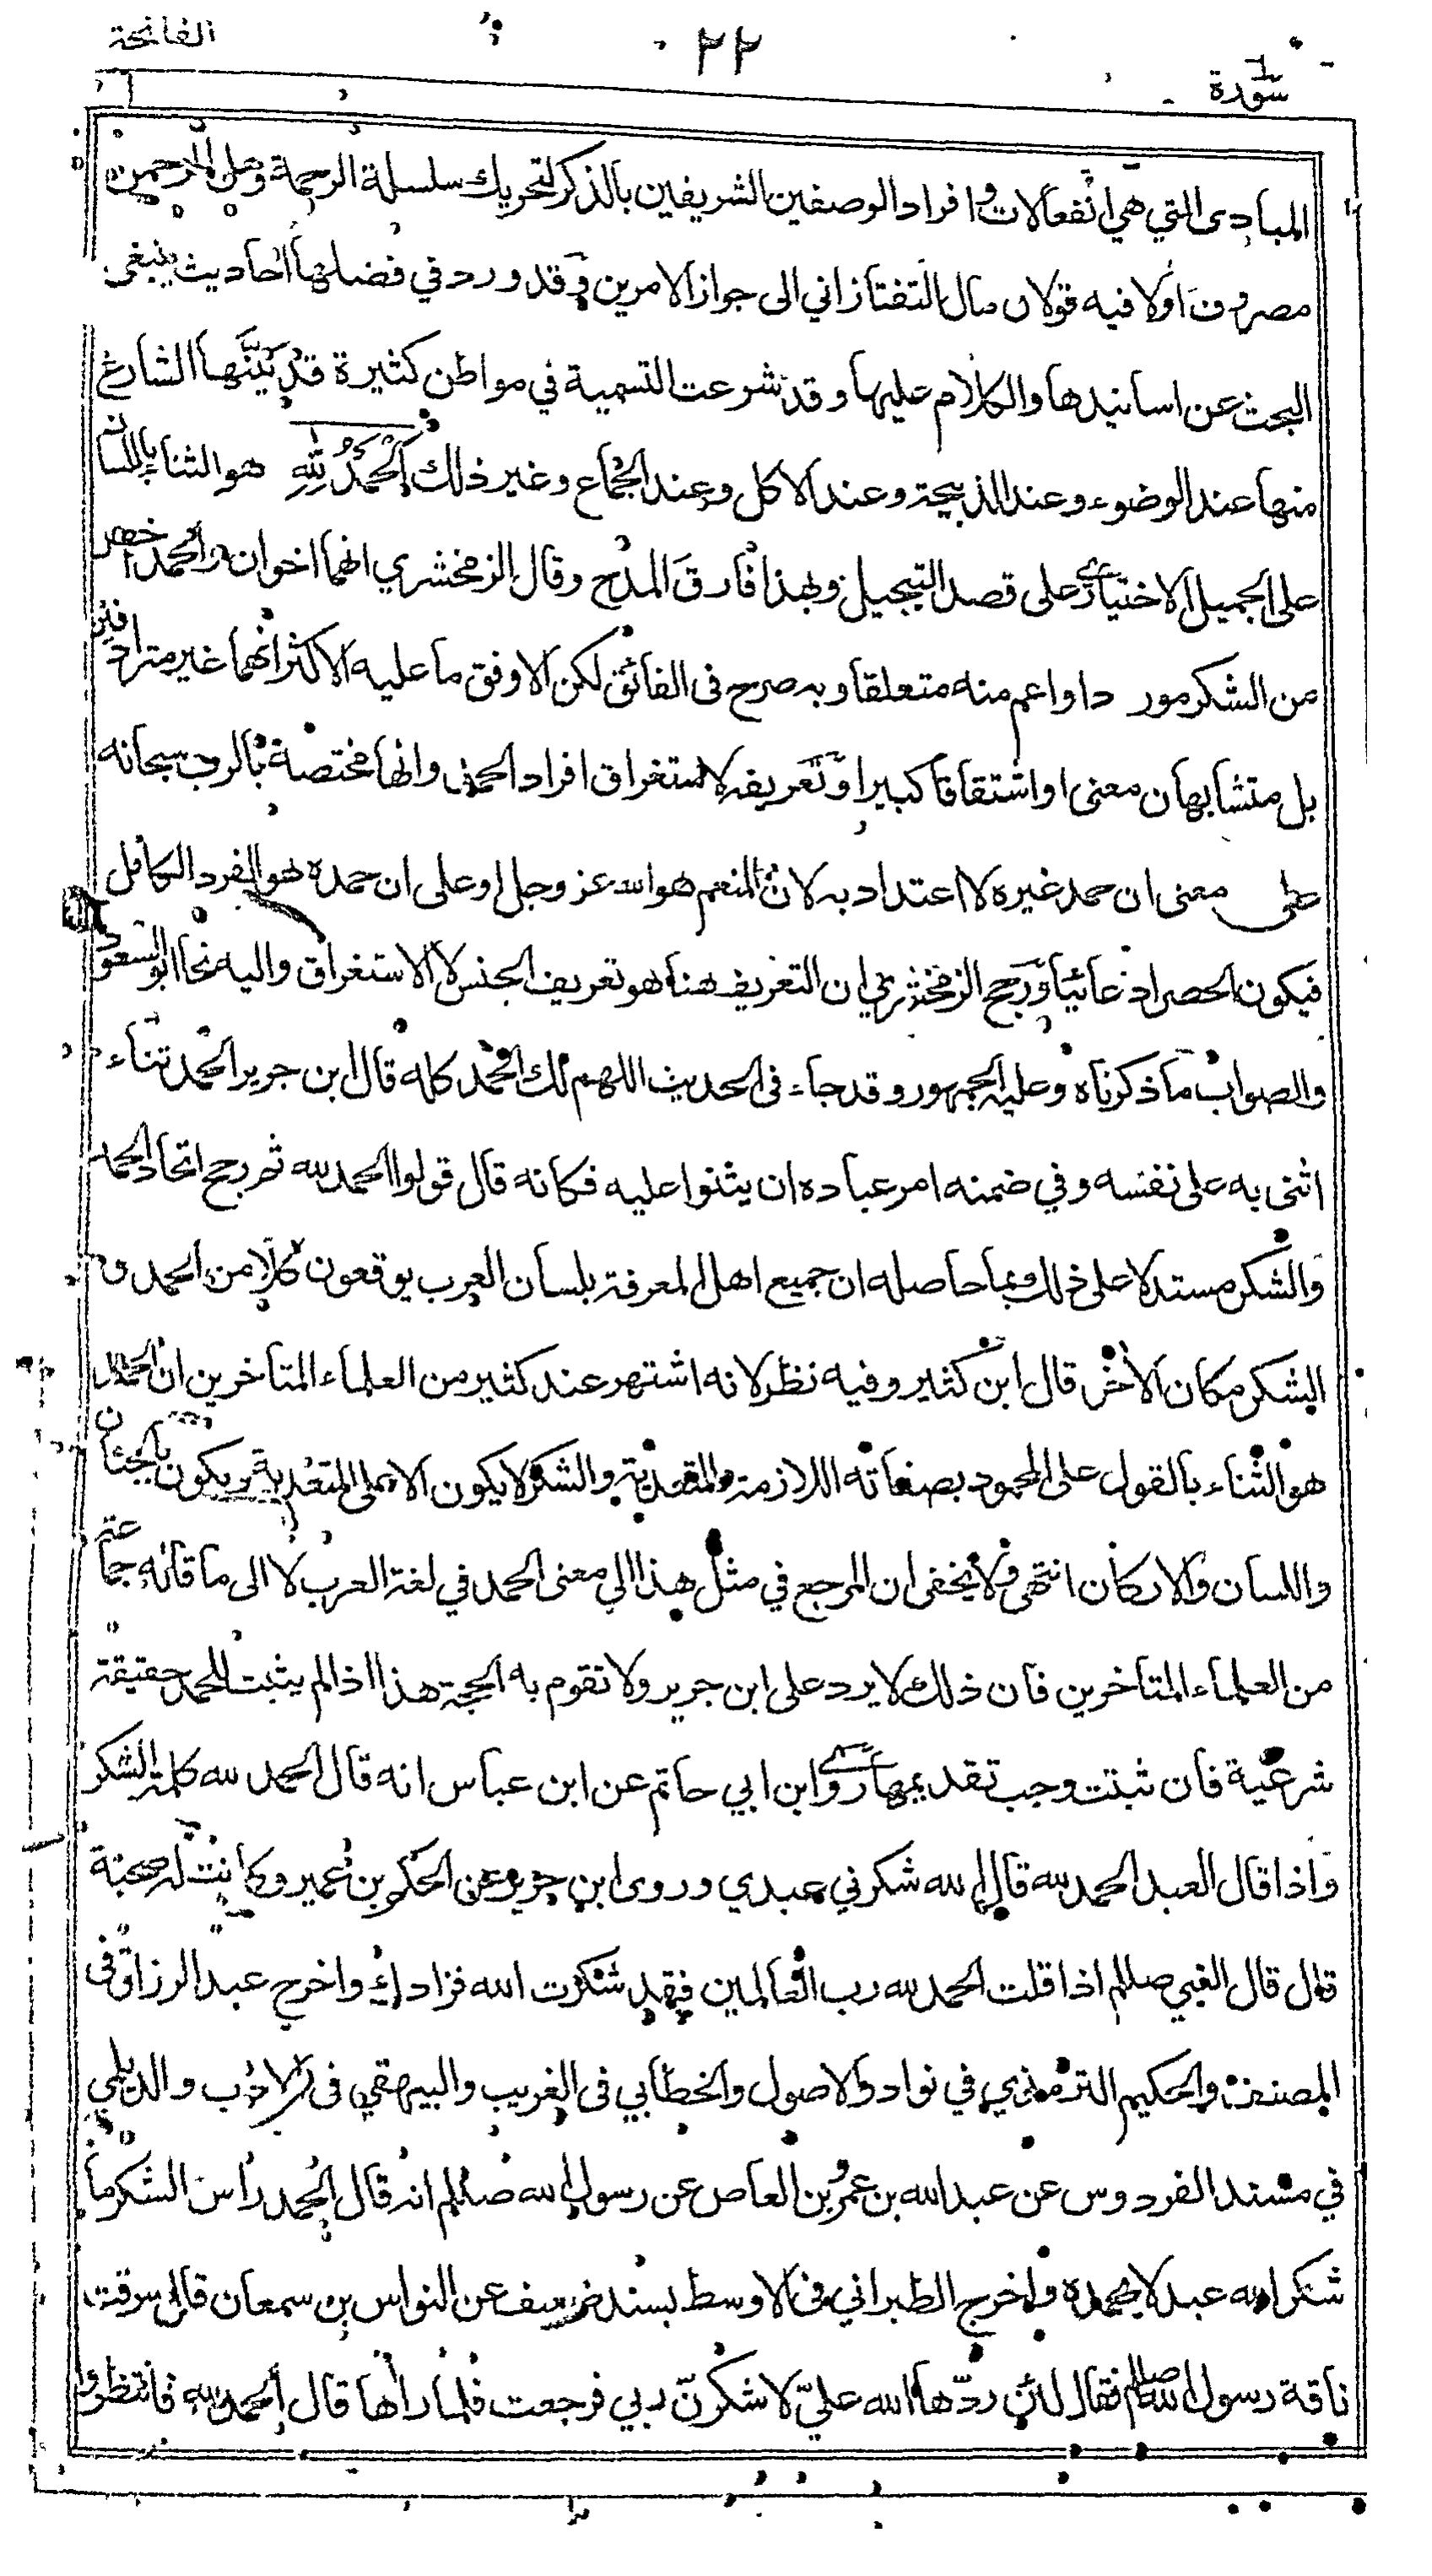 سورة
٢٢
الفاتحة
المبادى التي هي انفعالات وافراد الوصفين الشريفين بالذكر لتحريك سلسلة الرحمة وهل الرحمن
مصروف اولا فيه قولان مال التفتازاني الى جواز الامرين وقد ورد في فضلها احاديث ينبغى
البحث عن اسانيدها والكلام عليها وقد شرعت التسمية في مواطن كثيرة قد بَيَّنَها الشارع
منها عند الوضوء وعند الذبيحة وعند الاكل وعند الجماع وغير ذلك اَلْحَمْدُ لِلّٰهِ هو الثناء باللسان
على الجميل الاختياري على قصد التبجيل وبهذا فارق المدح وقال الزمخشري انهما اخوان والحمد اخص
من الشكر موردا واعم منه متعلقا وبه صرح فى الفائق لكن الاوفق ما عليه الاكثر انهما غير مترادفين
بل متشابهان معنى او اشتقاقا كبيرا وتعريفه لاستغراق افراد الحمد وانها مختصة بالرب سبحانه
على معنى ان حمد غيره لا اعتداد به لان المنعم هو الله عز وجل او على ان حمده هو الفرد الكامل
فيكون الحصر ادعائيا ورجح الزمخشري ان التعريف هنا هو تعريف الجنس لا الاستغراق واليه نحا ابو السعود
والصواب ما ذكرناه وعليه الجمهور وقد جاء فى الحديث اللهم لك الحمد كله قال ابن جرير الحمد ثناء
اثنى به على نفسه وفي ضمنه امر عباده ان يثنوا عليه فكانه قال قولوا الحمد لله ثم رجح اتحاد الحمد
والشكر مستدلا على ذلك بما حاصله ان جميع اهل المعرفة بلسان العرب يوقعون كلا من الحمد و
الشكر مكان الاخر قال ابن كثير وفيه نظر لانه اشتهر عند كثير من العلماء المتاخرين ان الحمد
هو الثناء بالقول على المحمود بصفاته اللازمة والمتعدية والشكر لا يكون الا على المتعدية ويكون بالجنان
واللسان والاركان انتهى ولا يخفى ان المرجع في مثل هذا الى معنى الحمد في لغة العرب لا الى ما قاله جماعة
من العلماء المتاخرين فان ذلك لا يرد على ابن جرير ولا تقوم به الحجة هذا اذا لم يثبت للحمد حقيقة
شرعية فان ثبتت وجب تقديمها روى ابن ابي حاتم عن ابن عباس انه قال الحمد لله كلمة الشكر
واذا قال العبد الحمد لله قال الله شكرني عبدي وروى ابن جرير عن الحكم بن عمير وكانت له صحبة
قال قال النبي صللم اذا قلت الحمد لله رب العالمين فقد شكرت الله فزادك واخرج عبد الرزاق فى
المصنف والحكيم الترمذي في نوادر الاصول والخطابي فى الغريب والبيهقي فى الادب والديلمي
في مسند الفردوس عن عبد الله بن عمرو بن العاص عن رسول الله صللم انه قال الحمد راس الشكر ما
شكر الله عبد لا يحمده واخرج الطبراني فى الاوسط بسند ضعيف عن النواس بن سمعان قال سرقت
ناقة رسول الله صللم فقال لئن ردّها الله عليّ لاشكرنّ ربي فرجعت فلما راٰها قال الحمد لله فانتظروا